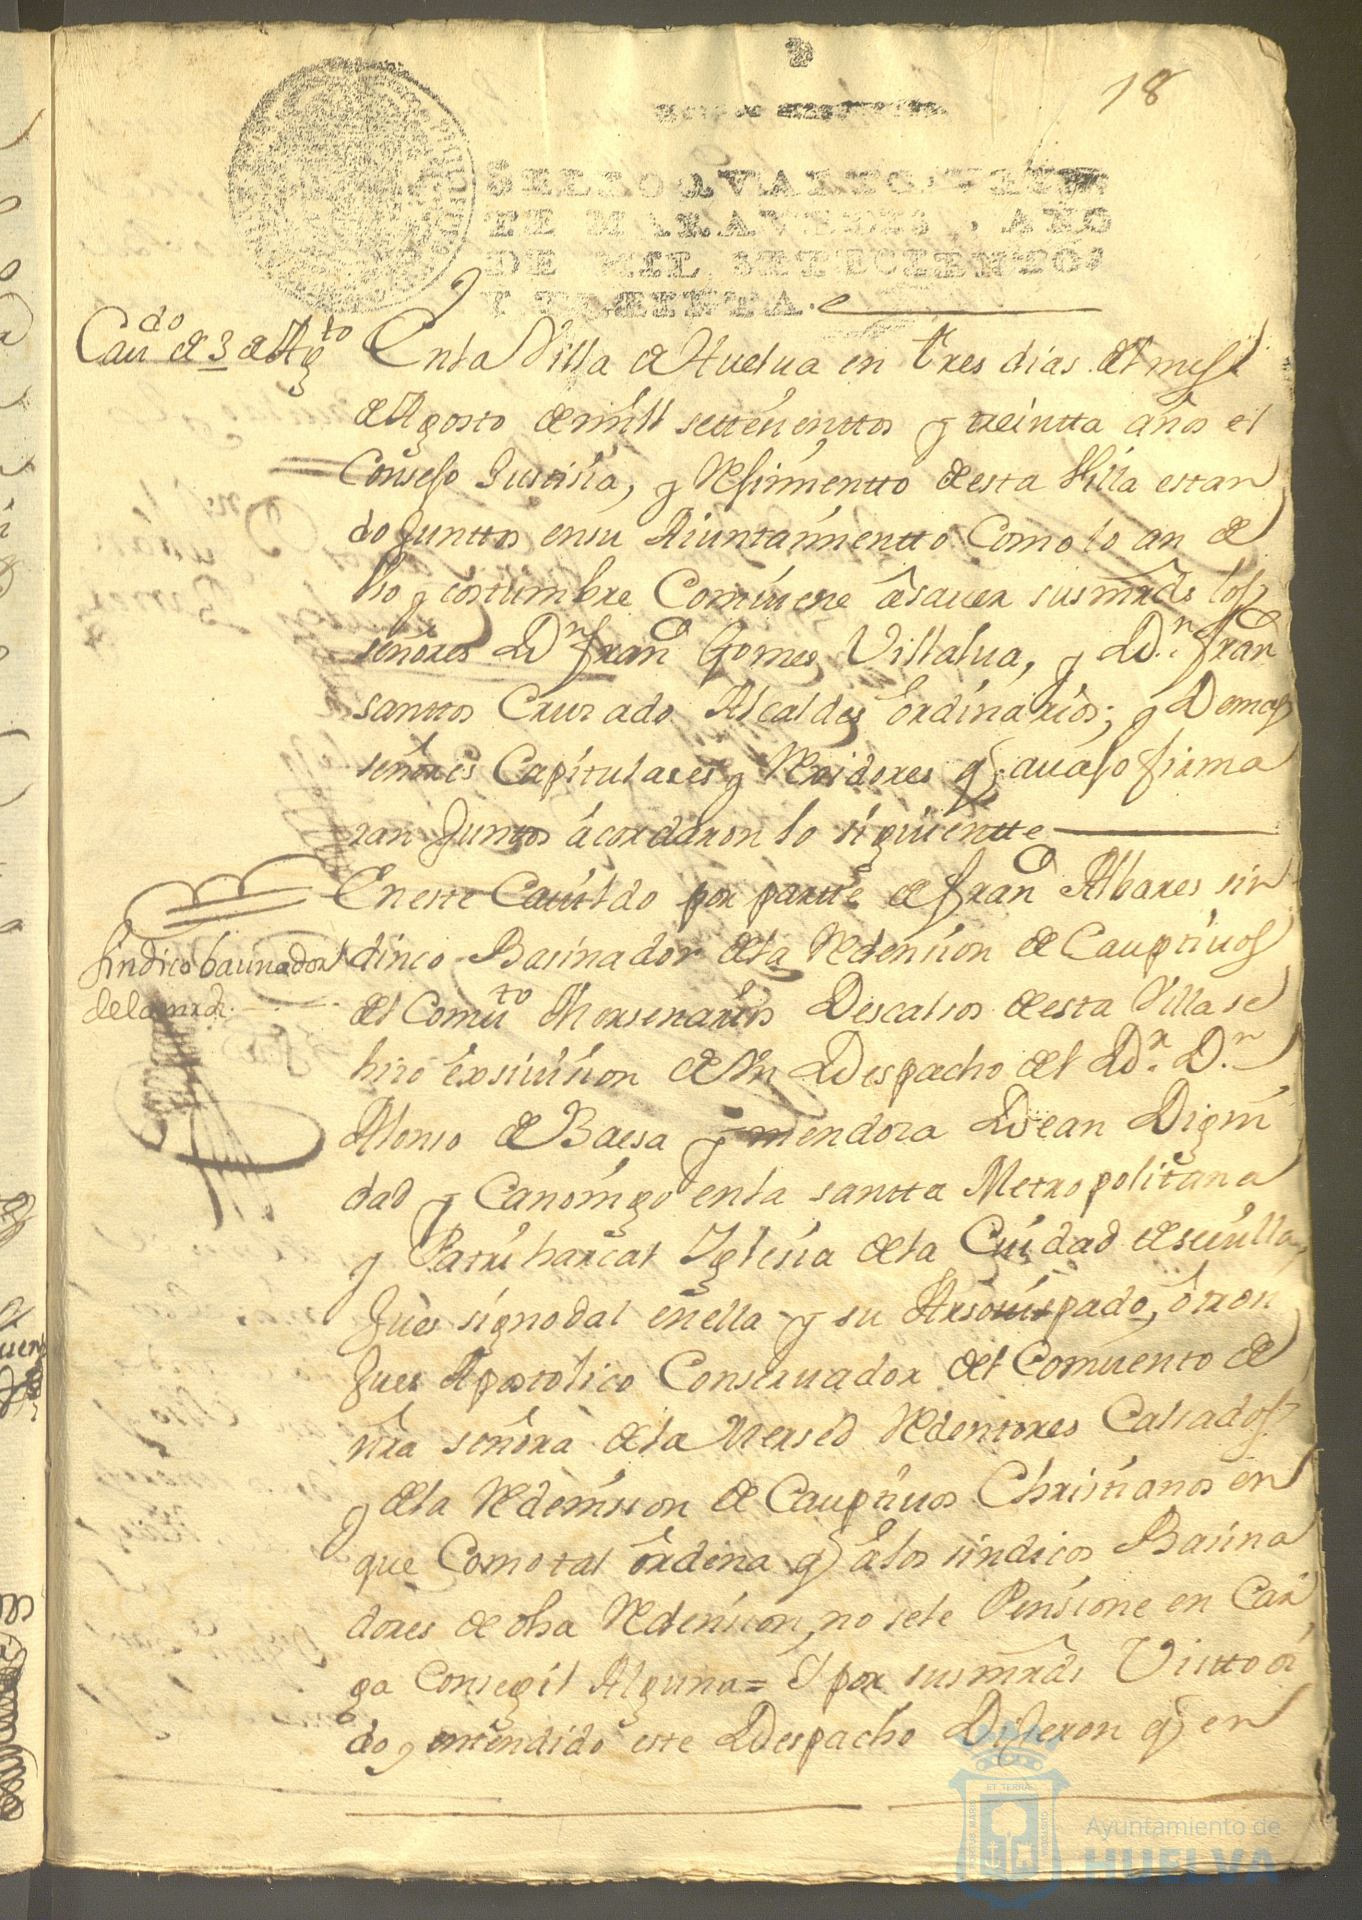 18
SELLO QVARTO, VEINTE
DE MARAVEDIS, AÑO
DE MIL SETECIENTOS
Y TREINTA.
Caudo de 3 de Agto
En la Villa de Huelua en tres dias del mes
de Agosto de mill settecienttos y treintta años el
Consejo Justisia, y Resimientto de esta Villa estan
do Junttos en su Aiuntamientto Como lo an de
Vso y costumbre Combiene a sauer sus mrds los
señores Dn Franco Gomes Villalua, y Dn Franco
santtos Cruzado Alcaldes ordinarios; y Demas
señores Capitulares y Rexidores q auajo firma
ran Junttos acordaron lo siguientte
En este Cauildo por partte de Franco Albares sin
Sindico basinador
de la mrd.
dico Basinador de la Redension de Cauptiuos
del Combto Mersenarios Descalsos de esta Villa se
hizo exsiuision de Vn Despacho del Dr. Dn
Alonso de Baesa y mendoza Dean Digni
dad y Canonigo en la santta Metropolitana
y Patriharcal Yglesia de la Ciudad de seuilla,
Jues signodal en ella y su Arsouispado,
Jues Apostolico Conseruador del Combento de
nra señora de la Mersed Redentores Calsados
y de la Redemsion de Cauptiuos Christianos en
que Como tal ordena q a los sindicos Basina
dores de dha Redension, no se le Pensione en Car
ga Consegil Alguna = Y por sus mrds Vistto oi
do y entendido este Despacho Dijeron q en
ET TERRA
Ayuntamiento de
HUELVA